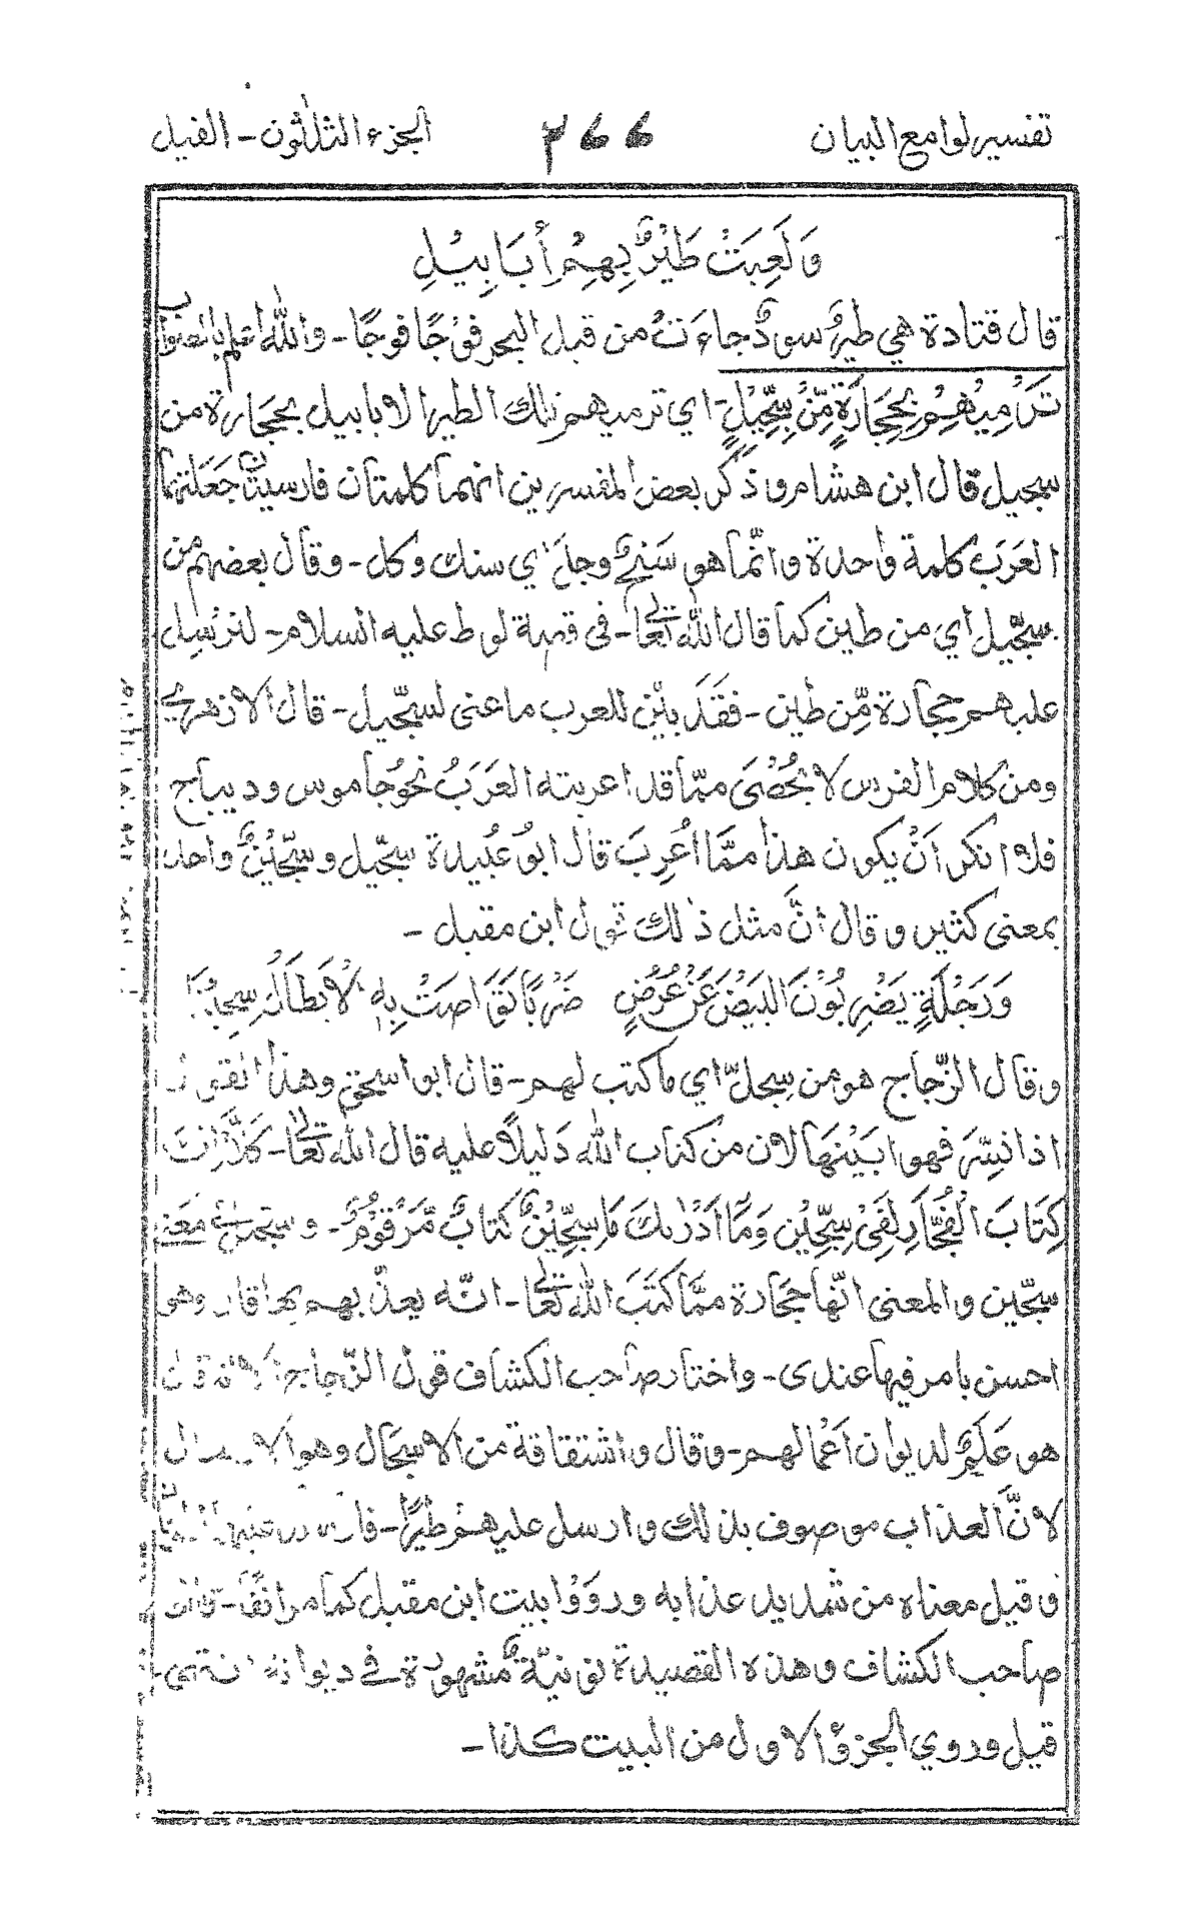 تفسير لوامع البيان ٢٦٦ الجزء الثلاثون - الفيل
وَلَعِبَتْ طَيْرٌ بِهِمْ أَبَابِيْلِ
قال قتادة هي طيرٌ سودٌ جاءَتْ من قبل البحر فوْجًا فوجًا - والله اعلم بالصواب
تَرْمِيْهِمْ بِحِجَارَةٍ مِّنْ سِجِّيْلٍ - اي ترميهم تلك الطير الابابيل بحجارة من
سجيل قال ابن هشام وذكر بعض المفسرين انهما كلمتان فارسيتان جَعَلتهما
العَرَبُ كلمة واحدة وانّما هو سَنْجٌ وجل اي سنك وكل - وقال بعضهم من
سجّيل اي من طين كما قال الله تعالى - في قصة لوط عليه السلام - لنرسِل
عليهم حجارة مِّن طين - فقَدَ بيّن للعرب ما عنى لسجّيل - قال الازهري
ومن كلام الفرس لا يُحْصٰى ممّا قد اعربته العَرَبُ نحوُ جاموس وديباج
فلا انكر اَنْ يكون هذا ممَّا اُعرِبَ قال ابو عُبيدة سجّيل وسجّيْنٌ واحد
بمعنى كثير وقال انّ مثل ذلك قول ابن مقبل -
وَرَجْلَةٍ يَضْرِبُوْنَ البَيْضَ عَنْ عُرُضٍ ضَرْبًا تَوَاصَتْ بِهِ الْاَبْطَالُ سِجِّيْنَا
وقال الزّجاج هو من سِجلّ اي ما كتب لهم - قال ابو اسحق وهذا القول
اذا فسِّرَ فهو ابَيْنهَا لان من كتاب الله دَليلًا عليه قال الله تعالى - كَلَّا اِنَّ
كِتَابَ الْفُجَّارِ لَفِيْ سِجِّيْن وَمَا اَدْرٰىكَ مَا سِجِّيْنٌ كتابٌ مَّرْقوْمٌ - و سجيل في مَعَنى
سجّين والمعنى انّها حجَارة ممَّا كتَبَ الله تعالى - انّه يعذّبهم بها قال وهو
احسن ما مر فيها عندى - واختار صاحب الكشاف قول الزّجاج لانه قال
هو عَلَمٌ لديوان اعْمالهم - وقال واشتقاقه من الاسجال وهو الارسال
لانَّ العذاب موصوف بذلك وارسل عليهم طيرًا - فارسلنا عليهم الطوفان
وقيل معناه من شديد عذابه ورووْا بيت ابن مقبل كما مر انفًا - قال
صاحب الكشاف وهذه القصيدة نونيّة مشهورة في ديوانه انتهى -
قيل وروي الجزؤ الاول من البيت كذا -